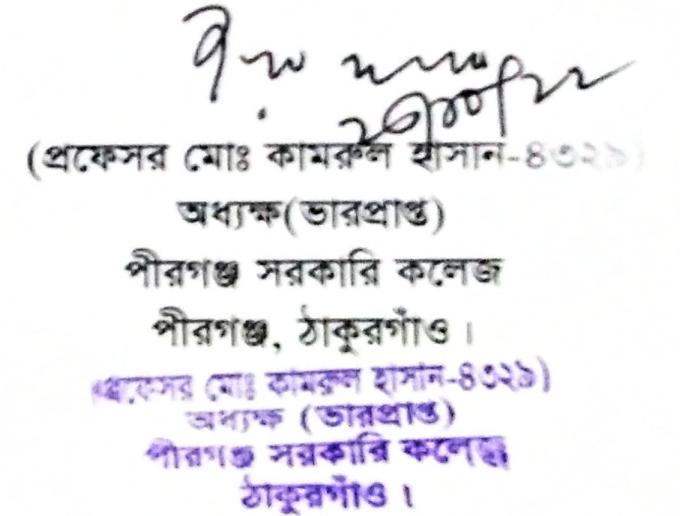 (প্রফেসর মোঃ কামরুল হাসান-৪৩২৯)
অধ্যক্ষ(ভারপ্রাপ্ত)
পীরগঞ্জ সরকারি কলেজ
পীরগঞ্জ, ঠাকুরগাঁও।
(প্রফেসর মোঃ কামরুল হাসান-৪৩২৯)
অধ্যক্ষ (ভারপ্রাপ্ত)
পীরগঞ্জ সরকারি কলেজ
ঠাকুরগাঁও।